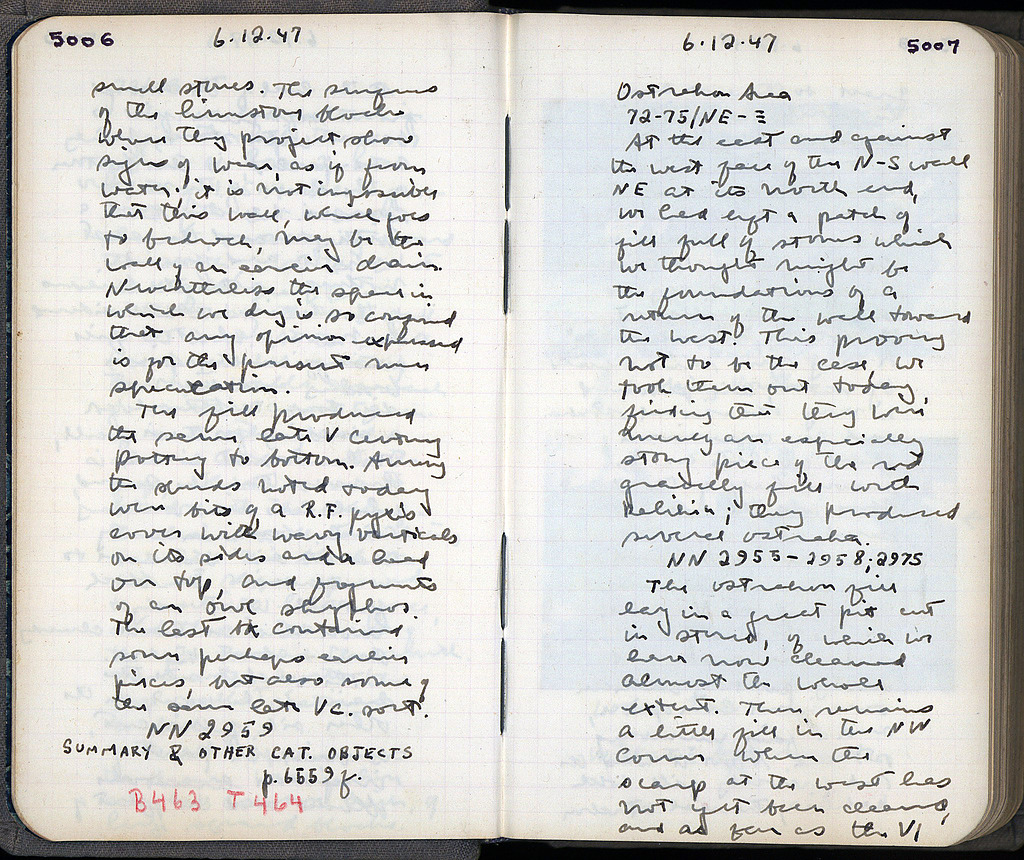 5006
6.12.47
small stones. The surfaces
of the limestone blocks
where they project show
signs of wear, as if from
water; it is not impossible
that this wall, which goes
to bedrock, may be the
wall of an earlier drain.
Nevertheless the space in
which we dug is so confined
that any opinion expressed
is for the present mere
speculation.
The fill produced
the same late V century
pottery to bottom. Among
the sherds noted today
were bits of a R.F. pyxis
cover with wavy verticals
on its sides and a head
on top, and fragments
of an owl skyphos.
The last contained
some perhaps earlier
pieces, but also some of
the same late Vc. sort.
NN 2959
SUMMARY & OTHER CAT. OBJECTS
p. 6559 f.
B463 T464
6.12.47
5007
Ostrakon Area
72-75/NE-Ξ
At the east and against
the west face of the N-S wall
NE at its north end,
we had left a patch of
fill full of stones which
we thought might be
the foundations of a
return of the wall toward
the west. This proving
not to be the case, we
took them out today,
finding that they were
merely an especially
stony piece of the road
gravelly fill with
; they produced
several ostraka.
NN 2955-2958; 2975
The ostrakon fill
lay in a great pit cut
in stereo, of which we
have now cleaned
almost the whole
extent. There remains
a little fill in the NW
corner where the
scarp at the west has
not yet been cleaned,
and as far as the VI